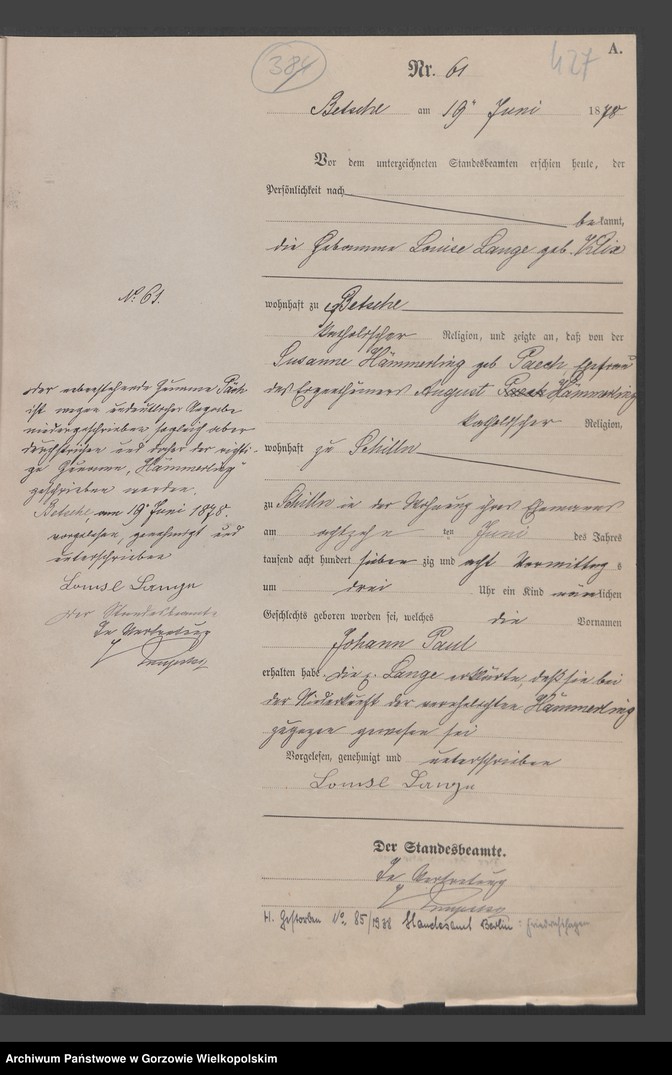 A.
384
427
Nr. 61
Betsche am 19ᵗ Juni 1878
Vor dem unterzeichneten Standesbeamten erschien heute, der
Persönlichkeit nach
be kannt,
die Hebamme Louise Lange geb. Klix
wohnhaft zu Betsche
katholischer Religion, und zeigte an, daß von der
Susanne Hämmerling geb Paech Ehefrau
des Eigenthümers August Paech Hämmerling
katholischer Religion,
wohnhaft zu Schilln
zu Schilln in der Wohnung ihres Ehemannes
am achtzehn ten Juni des Jahres
tausend acht hundert sieben zig und acht Vormittag s
um drei Uhr ein Kind männlichen
Geschlechts geboren worden sei, welches die Vornamen
Johann Paul
erhalten habe. die Lange erklärte, daß sie bei
der Niederkunft der verehelichten Hämmerling
zugegen gewesen sei
Vorgelesen, genehmigt und unterschrieben
Louise Lange
Der Standesbeamte.
In Vertretung
H. Gestorben No. 85/1938 Standesamt Berlin-Friedrichshagen
No. 61.
der nebenstehende Name Päch
ist wegen undeutlicher Angabe
niedergeschrieben sogleich aber
durchstrichen und daher der richti-
ge Name "Hämmerling"
geschrieben worden.
Betsche, am 19ᵗ Juni 1878.
vorgelesen, genehmigt und
unterschrieben
Louise Lange
Der Standesbeamte
In Vertretung
Archiwum Państwowe w Gorzowie Wielkopolskim